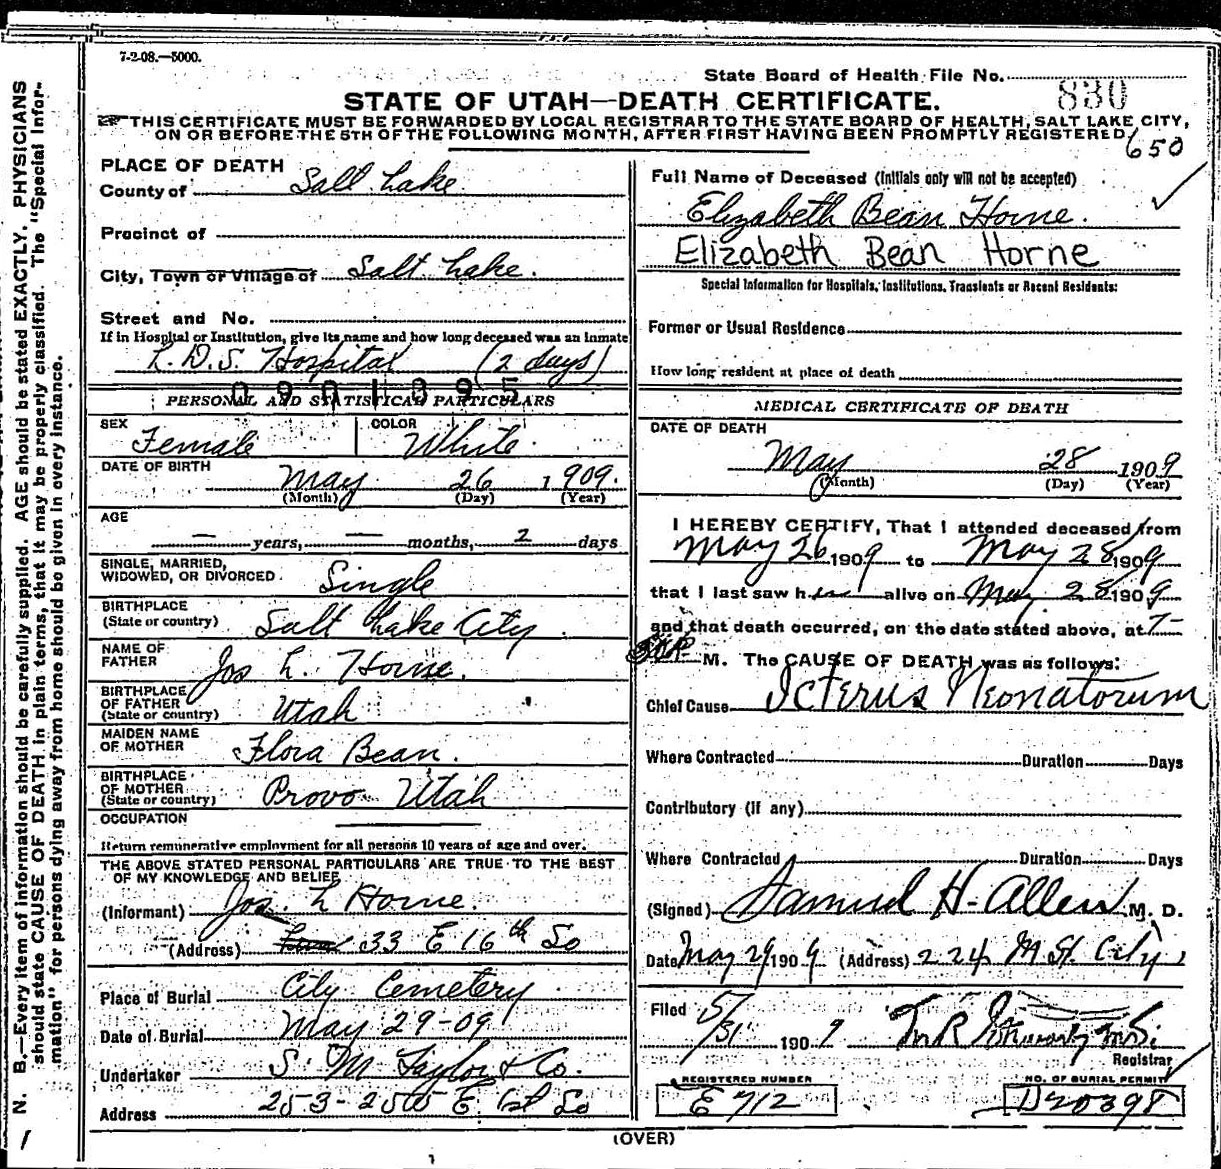 7-2-08.—5000.
State Board of Health File No.
830
STATE OF UTAH—DEATH CERTIFICATE.
THIS CERTIFICATE MUST BE FORWARDED BY LOCAL REGISTRAR TO THE STATE BOARD OF HEALTH, SALT LAKE CITY,
ON OR BEFORE THE 5TH OF THE FOLLOWING MONTH, AFTER FIRST HAVING BEEN PROMPTLY REGISTERED.
650
PLACE OF DEATH
County of Salt Lake
Precinct of
City, Town or Village of Salt Lake.
Street and No.
If in Hospital or Institution, give its name and how long deceased was an inmate
L. D. S. Hospital (2 days)
PERSONAL AND STATISTICAL PARTICULARS
SEX Female COLOR White.
DATE OF BIRTH May 26 1909.
(Month) (Day) (Year)
AGE
— years, — months, 2 days
SINGLE, MARRIED,
WIDOWED, OR DIVORCED. Single
BIRTHPLACE
(State or country) Salt Lake City.
NAME OF
FATHER Jos L. Horne.
BIRTHPLACE
OF FATHER
(State or country) Utah
MAIDEN NAME
OF MOTHER Flora Bean.
BIRTHPLACE
OF MOTHER
(State or country) Provo Utah
OCCUPATION
Return remunerative employment for all persons 10 years of age and over.
THE ABOVE STATED PERSONAL PARTICULARS ARE TRUE TO THE BEST
OF MY KNOWLEDGE AND BELIEF
(Informant) Jos. L Horne.
(Address) 33 E 16th So
Place of Burial City Cemetery.
Date of Burial May 29-09
Undertaker S. M. Taylor & Co.
Address 253- E. 1st So
Full Name of Deceased (Initials only will not be accepted)
Elizabeth Bean Horne.
Elizabeth Bean Horne
Special Information for Hospitals, Institutions, Transients or Recent Residents:
Former or Usual Residence
How long resident at place of death
MEDICAL CERTIFICATE OF DEATH
DATE OF DEATH
May 28 1909
(Month) (Day) (Year)
I HEREBY CERTIFY, That I attended deceased from
May 26 1909 to May 28 1909
that I last saw her alive on May 28 1909
and that death occurred, on the date stated above, at 7-
M. The CAUSE OF DEATH was as follows:
Chief Cause Icterus Neonatorum
Where Contracted Duration Days
Contributory (if any)
Where Contracted Duration Days
(Signed) Samuel H. Allen M. D.
Date May 29 1909 (Address) 224 M St. City
Filed 5/31 1909
Registrar
REGISTERED NUMBER
E 712
NO. OF BURIAL PERMIT
D20398
(OVER)
N. B.—Every item of information should be carefully supplied. AGE should be stated EXACTLY. PHYSICIANS
should state CAUSE OF DEATH in plain terms, that it may be properly classified. The "Special Infor-
mation" for persons dying away from home should be given in every instance.